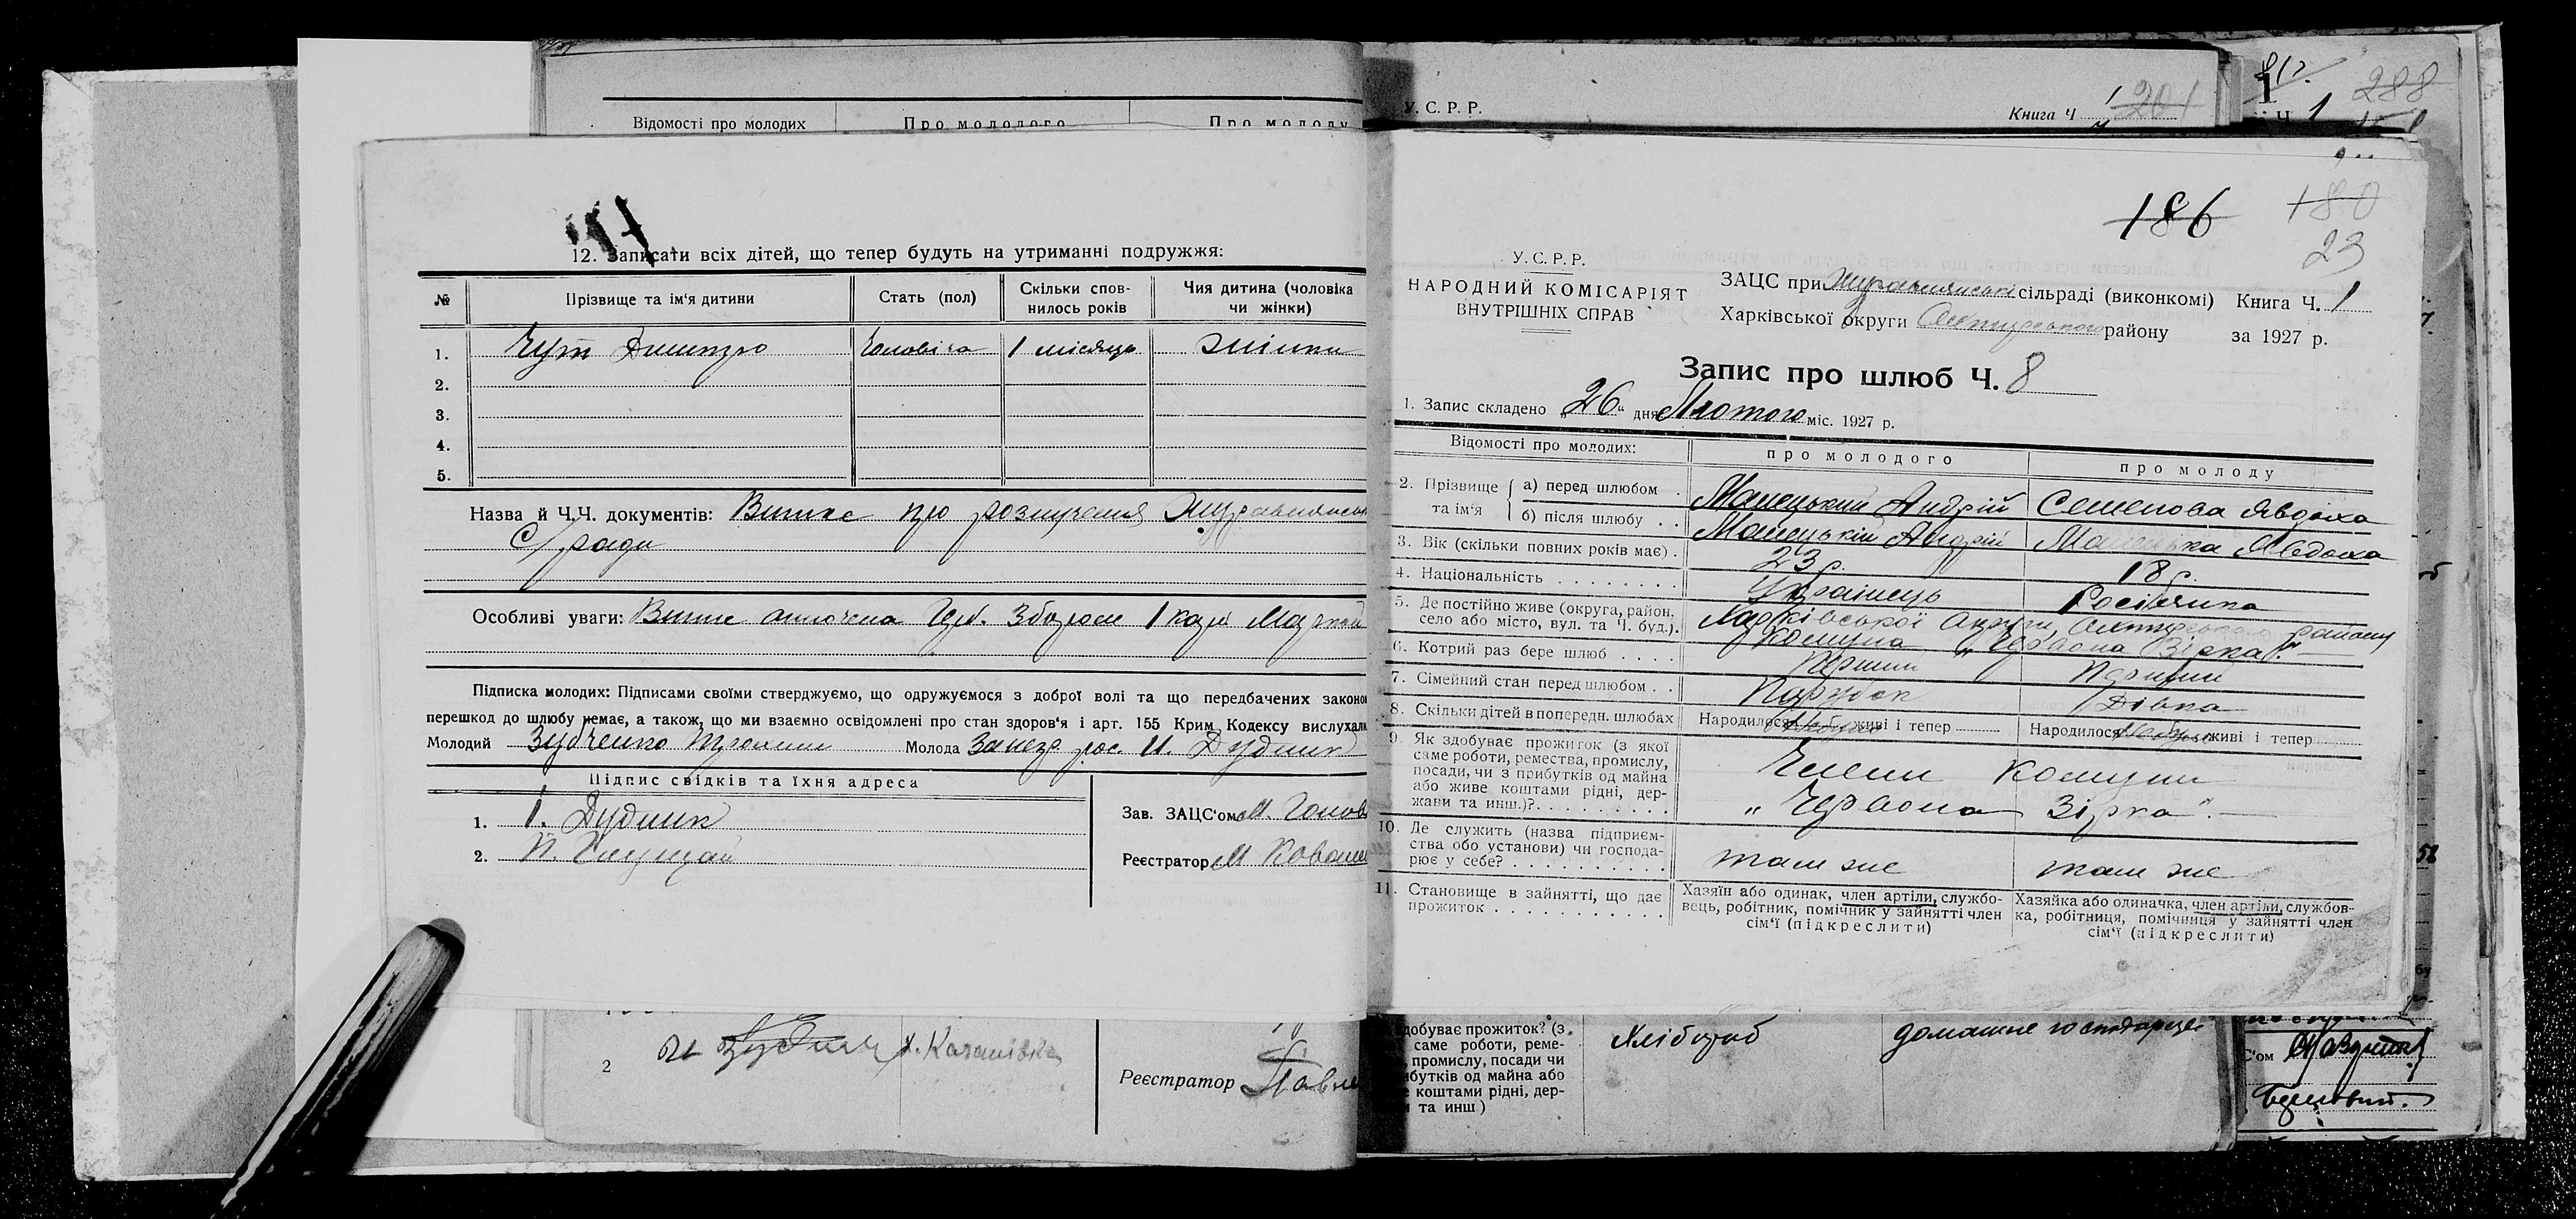 Відомості про молодих Про молодого Про молоду
12. Записати всіх дітей, що тепер будуть на утриманні подружжя:
№ Прізвище та ім'я дитини Стать (пол) Скільки спов-нилось років Чия дитина (чоловіка чи жінки)
1. Чут Дмитро Чоловіча 1 місяць жінки
2.
3.
4.
5.
Назва й Ч.Ч. документів: Витяг про розлучення
С/ради
Особливі уваги: 1 кар
Підписка молодих: Підписами своїми стверджуємо, що одружуємося з доброї волі та що передбачених законо
перешкод до шлюбу немає, а також, що ми взаємно освідомлені про стан здоров'я і арт. 155 Крим. Кодексу вислухали
Молодий Зубченко Трохим Молода За негр. рос. И. Дудник
Підпис свідків та їхня адреса
1. І. Дудник
2. П.
Зав. ЗАЦС'ом М.
Реєстратор М
2 х. Качанівка
Реєстратор Павл
У. С. Р. Р.
Книга Ч 1 201
288
Ч 1
186
180
23
У. С. Р. Р.
НАРОДНИЙ КОМІСАРІЯТ
ВНУТРІШНІХ СПРАВ
ЗАЦС при Журавлянські сільраді (виконкомі) Книга Ч. 1
Харківської округи Охтирського району за 1927 р.
Запис про шлюб Ч. 8
1. Запис складено „26“ дня Лютого міс. 1927 р.
Відомості про молодих: про молодого про молоду
2. Прізвище та ім'я
а) перед шлюбом . Манецький Андрій Семенова Явдоха
б) після шлюбу . . Манецький Андрій Манецька Явдоха
3. Вік (скільки повних років має) . 23 р. 18 р.
4. Національність . . . . . . . . Українець Росіянка
5. Де постійно живе (округа, район,
село або місто, вул. та Ч. буд.).
Харківської Округи, Охтирського району
Комуна „Червона Зірка".
6. Котрий раз бере шлюб . . . . Перший Перший
7. Сімейний стан перед шлюбом . . Парубок Дівка
8. Скільки дітей в попередн. шлюбах Народилося Не було живі і тепер Народилося Не було живі і тепер
9. Як здобуває прожиток (з якої
саме роботи, ремества, промислу,
посади, чи з прибутків од майна
або живе коштами рідні, дер-
жави та инш.)?. . . . . . . . .
Члени Комуни
„Червона Зірка".
10. Де служить (назва підприєм-
ства обо установи) чи господа-
рює у себе? . . . . . . . . . .
там же там же
11. Становище в зайнятті, що дає
прожиток . . . . . . . . . . . .
Хазяїн або одинак, член артіли, службо-
вець, робітник, помічник у зайнятті член
сім'ї (підкреслити)
Хазяйка або одиначка, член артіли, службов-
ка, робітниця, помічниця у зайнятті член
сім'ї (підкреслити)
добуває прожиток? (з
саме роботи, реме-
, промислу, посади чи
ибутків од майна або
е коштами рідні, дер-
и та инш)
Хлібороб домашнє господарце
С'ом